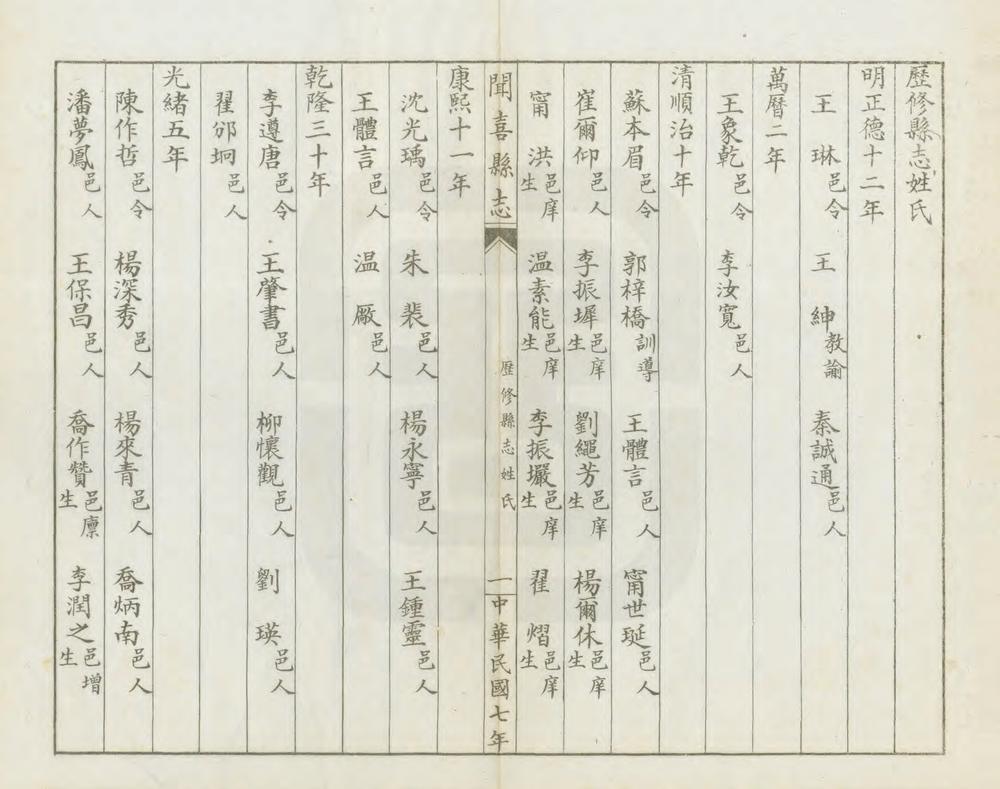 歷修縣志姓氏
明正德十二年
王　琳邑令　王　紳教諭　秦誠通邑人
萬曆二年
王象乾邑令　李汝寬邑人
清順治十年
蘇本眉邑令　郭梓橋訓導　王體言邑人　甯世珽邑人
崔爾仰邑人　李振墀邑庠生　劉繩芳邑庠生　楊爾休邑庠生
甯　洪邑庠生　温素能邑庠生　李振巖邑庠生　翟　熠邑庠生
聞喜縣志　歷修縣志姓氏　一　中華民國七年
康熙十一年
沈光瑀邑令　朱　裴邑人　楊永寧邑人　王鍾靈邑人
王體言邑人　温　厰邑人
乾隆三十年
李遵唐邑令　王肇書邑人　柳懷觀邑人　劉　瑛邑人
翟邠坰邑人
光緒五年
陳作哲邑令　楊深秀邑人　楊來青邑人　喬炳南邑人
潘夢鳳邑人　王保昌邑人　喬作贊邑廩生　李潤之邑增生